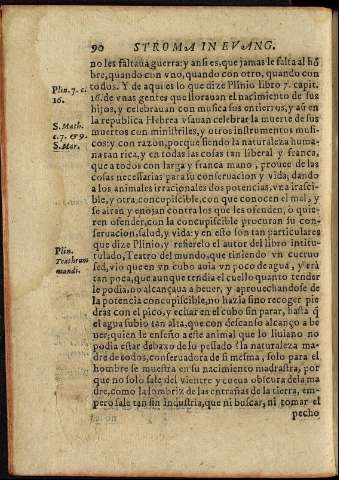 90 STROMA IN EVANG.
no les faltaua guerra: y ansi es, que jamas le falta al hō
bre, quando con vno, quando con otro, quando con
Plin. 7. c. 16.
todos. Y de aqui es lo que dize Plinio libro 7. capit.
16. de vnas gentes que llorauan el nacimiento de sus
hijos, y celebrauan con musica sus entierros, y aū en
la republica Hebrea vsauan celebrar la muerte de sus
S. Math. c. 7. er 9. S. Mar.
muertos con ministriles, y otros instrumentos musi-
cos: y con razon, porque siendo la naturaleza huma-
na tan rica, y en todas las cosas tan liberal y franca,
que a todos con larga y franca mano, prouee de las
cosas necessarias para su conseruacion y vida, dando
a los animales irracionales dos potencias, vna irasci-
ble, y otra, concupiscible, con que conocen el mal, y
se airan y enojan contra los que les ofenden, o quie-
ren ofender, con la concupiscible procuran su con-
seruacion, salud, y vida: y en esto son tan particulares
que dize Plinio, y refierelo el autor del libro intitu-
Plin. Teathrum mundi.
tulado, Teatro del mundo, que tiniendo vn cueruo
sed, vio que en vn cubo auia vn poco de agua, y era
tan poca, que aunque tendia el cuello quanto tender
le podia, no alcançaua a beuer, y aprouechandose de
la potencia concupiscible, no hazia sino recoger pie
dras con el pico, y echar en el cubo sin parar, hasta q̄
el agua subio tan alta, que con descanso alcanço a be
uer; quien le enseño a este animal que lo liuiano no
podia estar debaxo de lo pesado? la naturaleza ma-
dre de todos, conseruadora de si mesma, solo para el
hombre se muestra en su nacimiento madrastra, por
que no solo sale del vientre y cueua obscura de la ma
dre, como la lombriz de las entrañas de la tierra, em-
pero sale tan sin industria, que ni buscar, ni tomar el
pecho